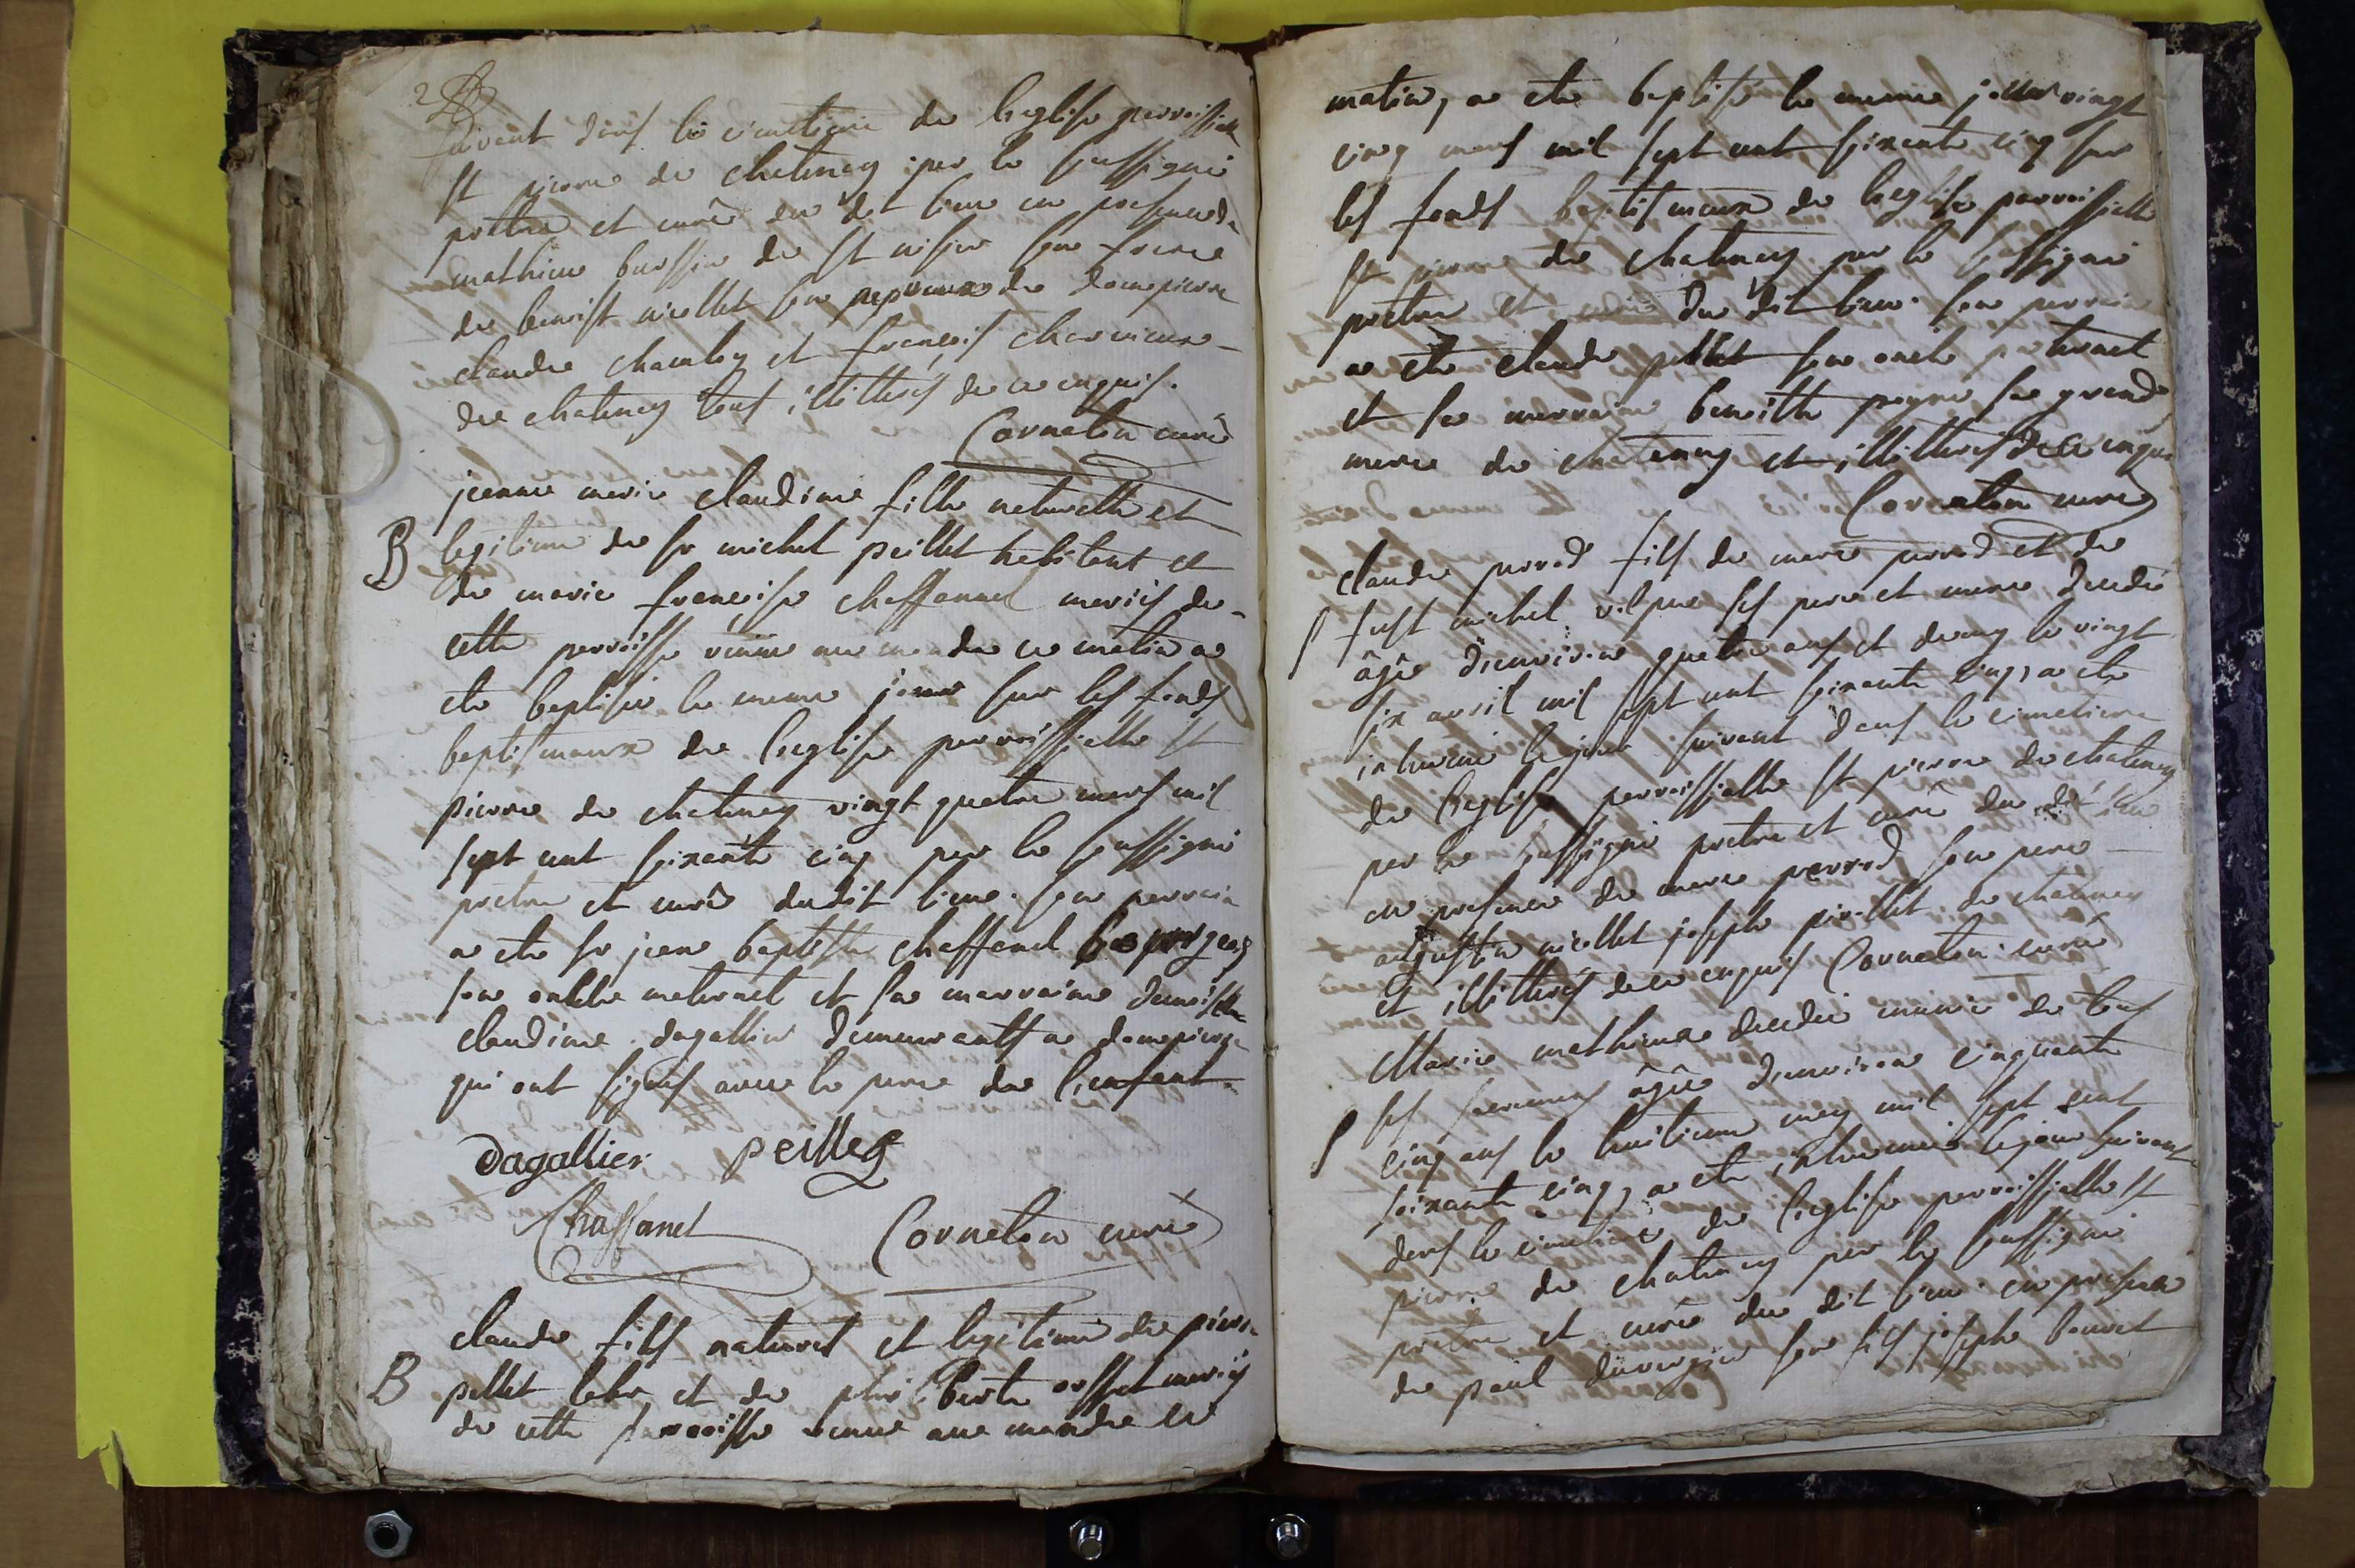 2
suivent dans le cimetiere de l'eglise parroissielle
St pierre de chatenay par le soussigné
prêtre et curé du dit lieu en presence de
mathieu bussin de St son frere
de benoist nicollet son de dompierre
claude chambey et françois charvieux
de chatenay tous illitterés de ce enquis.
Corneton curé
jeanne marie claudine fille naturelle et
B legitime de sr michel peillet habitant et
de marie françoise chassanel mariés de
cette parroisse venue au monde ce matin a
ete baptisée le meme jour sur les fonds
baptismaux de l'eglise parroissielle St
pierre de chatenay vingt quatre mars mil
sept cent soixante cinq par le soussigné
pretre et curé dudit lieu. son parrain
a ete sr jean baptiste chassanel bourgeois
son oncle maternel et sa marraine demoiselle
claudine dagallier demeurants a dompierre
qui ont signés avec le pere de l'enfant.
Dagallier peilleg
Chassanel Corneton curé
claude fils naturel et legitime de pierre
B pellet labr et de philiberte mariés
de cette parroisse venue au monde ce
matin, a ete baptisé le meme jour vingt
cinq mars mil sept cent soixante cinq sur
les fonds baptismaux de l'eglise parroissielle
St pierre de chatenay par le soussigné
pretre et curé du dit lieu. son parrain
a ete claude pellet son oncle paternel
et sa marraine benoitte sa grand
mere de chatenay et illitterés de ce enquis
Corneton curé
claude perrod fils de marc perrod et de
S fust michel ses pere et mere decedé
âgé d'environ quatre ans et demy le vingt
six avril mil sept cent soixante cinq, a ete
inhumé le jour suivant dans le cimetiere
de l'eglise parroissialle St pierre de chatenay
par le soussigné pretre et curé du dit lieu
en presence de marc perrod son pere
augustin nicollet joseph de chatenay
et illitterés de ce enquis Corneton curé
Marie decedée munie de tous
S les sacremens âgée d'environ cinquante
cinq ans le huitieme may mil sept cent
soixante cinq, a ete inhumée le jour suivant
dans le cimetiere de l'eglise parroissialle St
pierre de chatenay par le soussigné
pretre et curé du dit lieu en presence
de paul duvergier son fils joseph bouvet